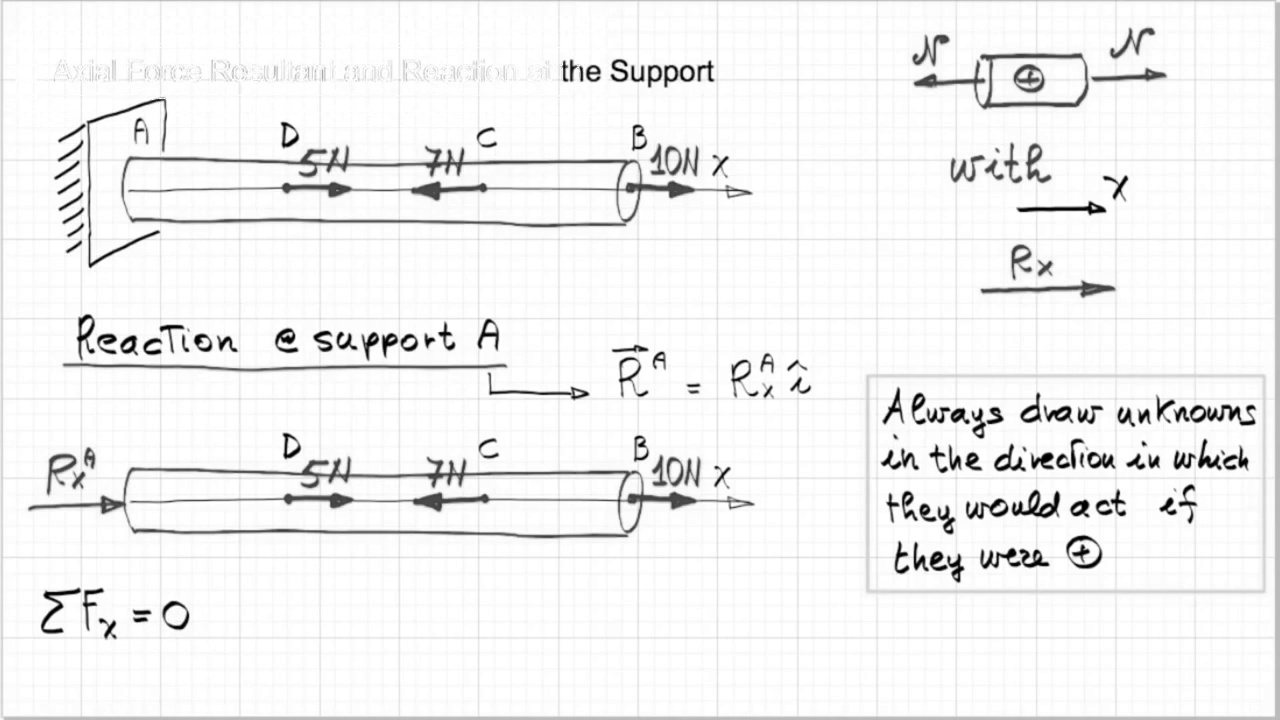 Axial Force Resultant and Reaction at the Support
A
D
5N
7N
C
B
10N
x
N
+
N
with
x
Rx
Reaction @ support A
R^A = Rx^A î
Always draw unknowns
in the direction in which
they would act if
they were ⊕
Rx^A
D
5N
7N
C
B
10N
x
ΣFx = 0